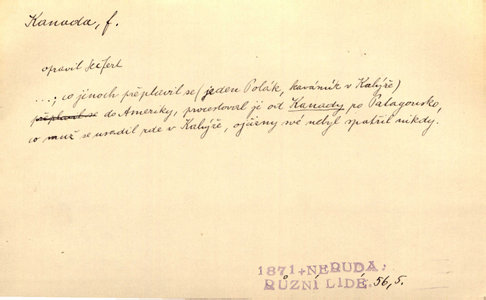 Kanada, f.
opravil Seifert
...., co jinoch přeplavil se (jeden Polák, kavárník v Kahýře)
přeplavil se do Ameriky, procestoval ji od Kanady po Patagonsko,
co muž se usadil zde v Kahýře, ojčizny své nebyl spatřil nikdy.
1871 + NERUDA:
RŮZNÍ LIDÉ. 56, 5.